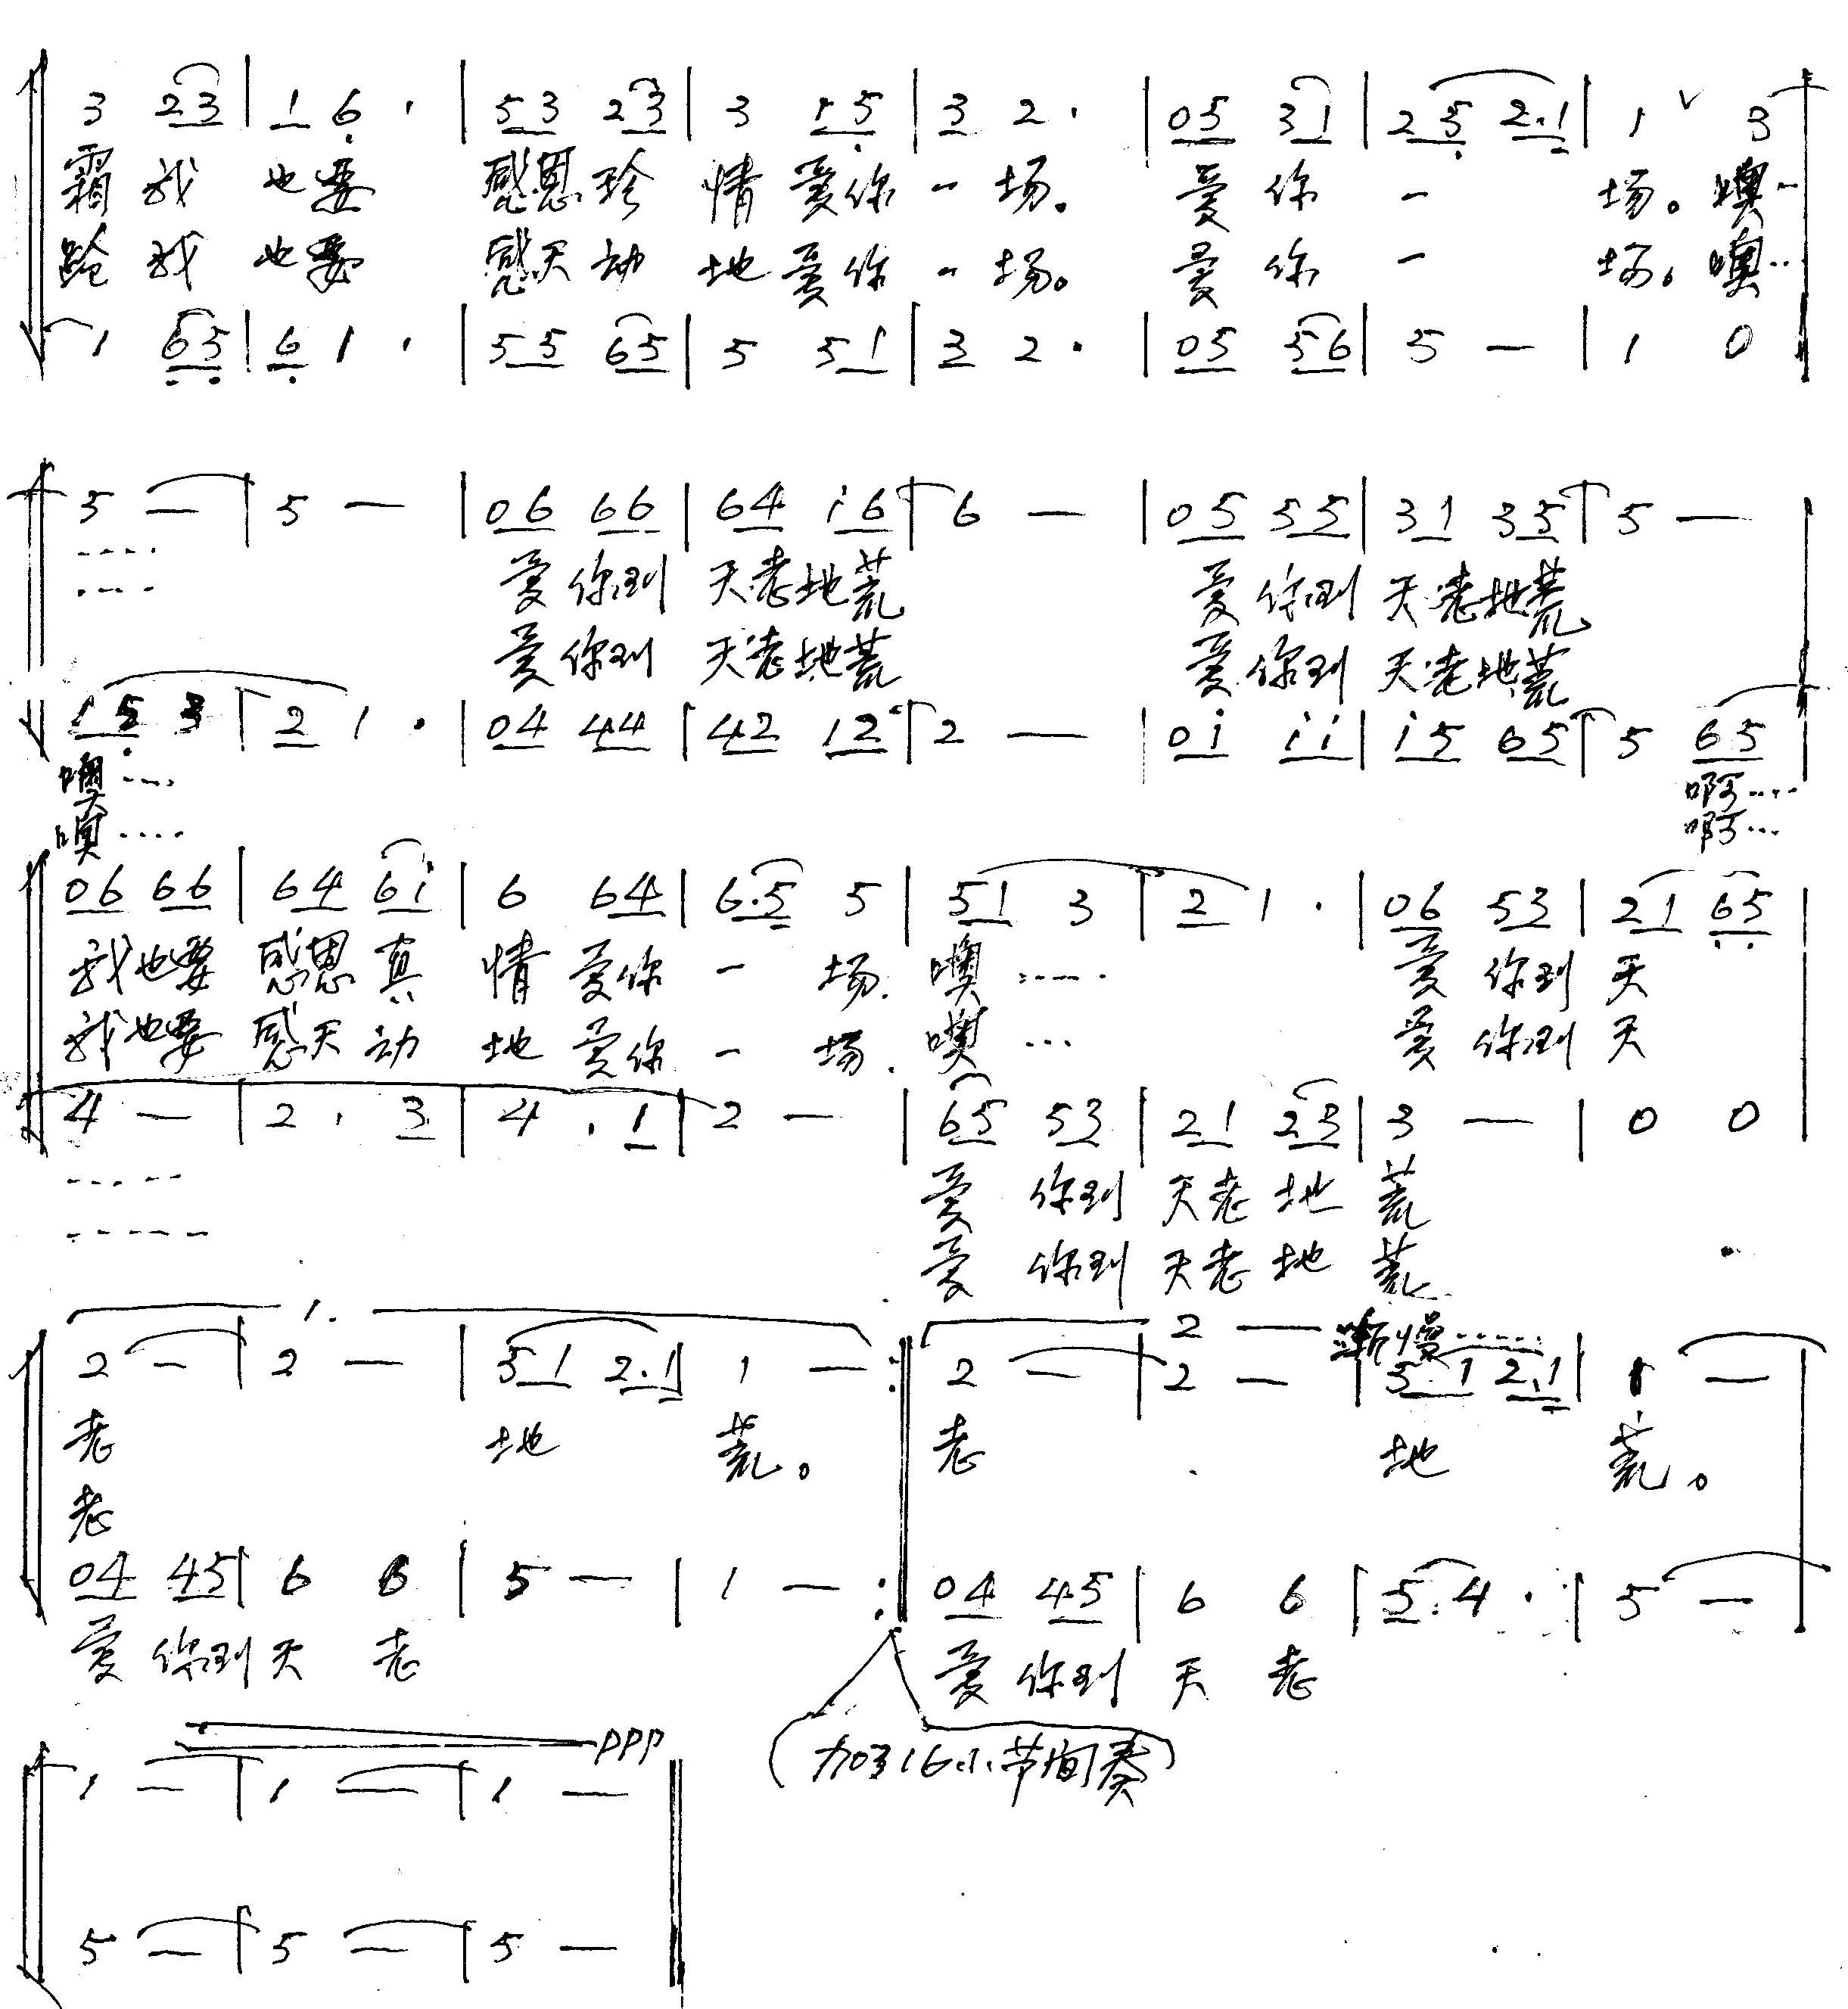 3 23 | 1 6 · | 53 23 | 3 15 | 3 2 · | 05 31 | 25 2·1 | 1 ∨ 3
霜 我 也要 感恩珍 情 爱你 一 场。 爱 你 一 场。噢…
我 也要 感天动 地 爱你 一 场。 爱 你 一 场。噢…
1 65 | 6 1 · | 55 65 | 5 51 | 3 2 · | 05 56 | 5 — | 1 0
5 — | 5 — | 06 66 | 64 i6 | 6 — | 05 55 | 31 35 | 5 —
…… 爱 你到 天老地荒 爱 你到 天老地荒
…… 爱 你到 天老地荒 爱 你到 天老地荒
15 3 | 2 1 · | 04 44 | 42 12 | 2 — | 0i ii | i5 65 | 5 65
噢…… 啊……
噢…… 啊…
06 66 | 64 6i | 6 64 | 6·5 5 | 51 3 | 2 1 · | 06 53 | 21 65
我也要 感恩真 情 爱你 一 场. 噢…… 爱 你到 天
我也要 感天动 地 爱你 一 场. 噢… 爱 你到 天
4 — | 2 · 3 | 4 · 1 | 2 — | 65 53 | 21 23 | 3 — | 0 0
…… 爱 你到 天老 地 荒
…… 爱 你到 天老 地 荒
1. 2 — 渐慢……
2 — | 2 — | 51 2·1 | 1 — :‖ 2 — | 2 — | 5·1 2·1 | 1 —
老 地 荒。 老 地 荒。
老
04 45 | 6 6 | 5 — | 1 — :‖ 04 45 | 6 6 | 5 4 · | 5 —
爱 你到 天 老 爱 你到 天 老
ppp
(加了16小节间奏)
1 — | 1 — | 1 —
5 — | 5 — | 5 —